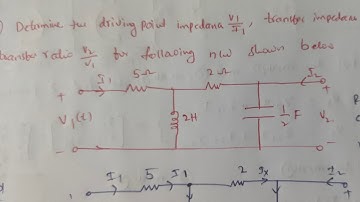 ) Determine the driving point impedance V1/I1, transfer impedance
transfer ratio V2/V1 for following n/w shown below
I1 5Ω 2Ω I2
+ +
V1(t) 2H 1/2 F V2
- -
I1 5 I1 2 Ix I2